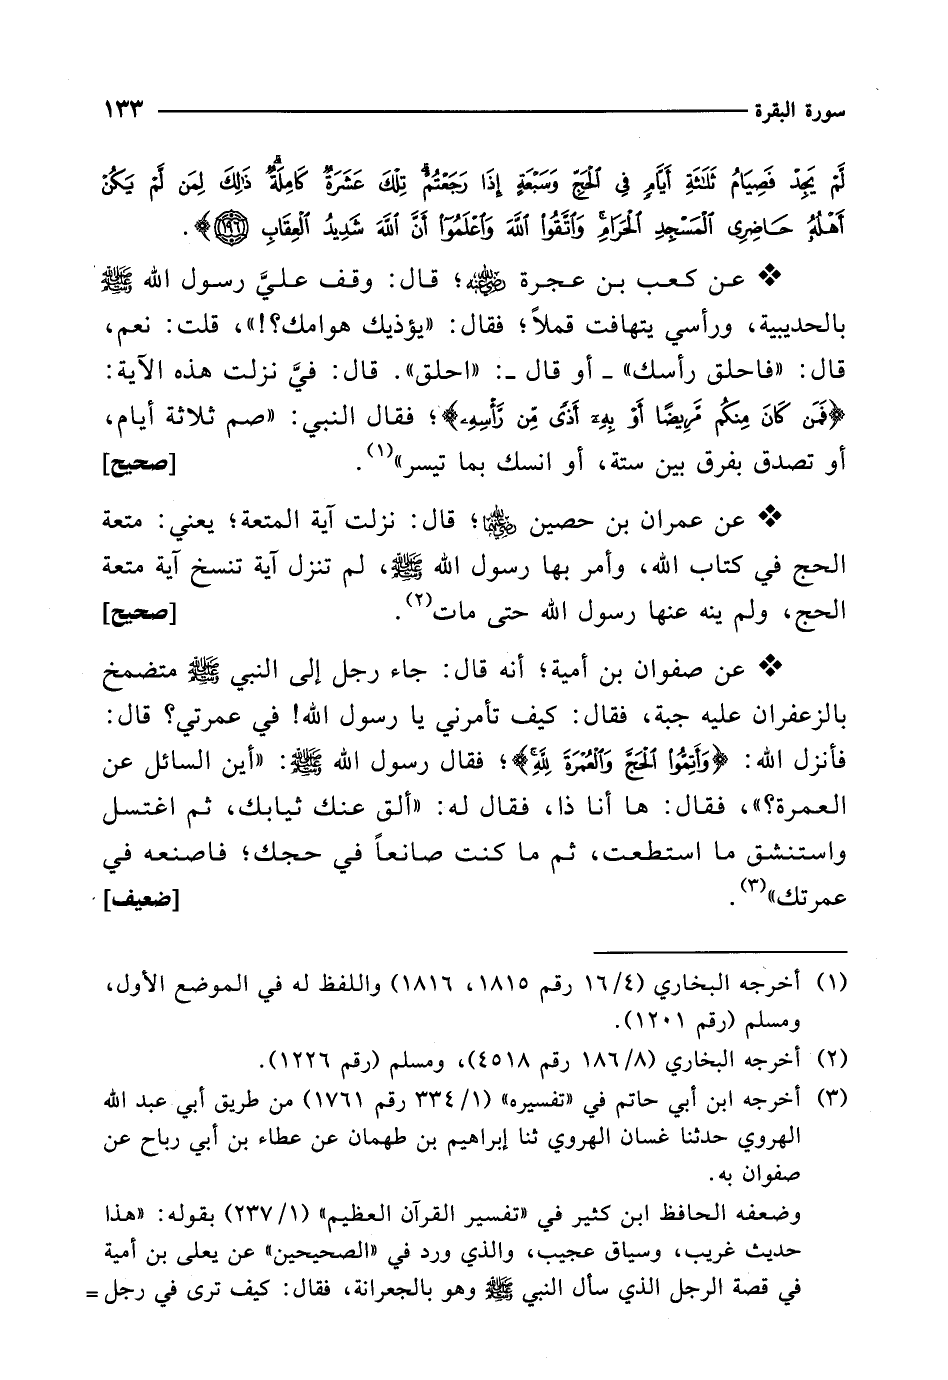 سورة البقرة ١٣٣
لَّمْ يَجِدْ فَصِيَامُ ثَلَٰثَةِ أَيَّامٍ فِي ٱلْحَجِّ وَسَبْعَةٍ إِذَا رَجَعْتُمْ تِلْكَ عَشَرَةٌ كَامِلَةٌ ذَٰلِكَ لِمَن لَّمْ يَكُنْ
أَهْلُهُۥ حَاضِرِى ٱلْمَسْجِدِ ٱلْحَرَامِ وَٱتَّقُوا۟ ٱللَّهَ وَٱعْلَمُوٓا۟ أَنَّ ٱللَّهَ شَدِيدُ ٱلْعِقَابِ ﴿١٩٦﴾﴾.
❖ عن كعب بن عجرة رضي الله عنه؛ قال: وقف عليَّ رسول الله ﷺ
بالحديبية، ورأسي يتهافت قملاً؛ فقال: «يؤذيك هوامك؟!»، قلت: نعم،
قال: «فاحلق رأسك» ـ أو قال ـ: «احلق». قال: فيَّ نزلت هذه الآية:
﴿فَمَن كَانَ مِنكُم مَّرِيضًا أَوْ بِهِۦٓ أَذًى مِّن رَّأْسِهِۦ﴾؛ فقال النبي: «صم ثلاثة أيام،
أو تصدق بفرق بين ستة، أو انسك بما تيسر»(١). [صحيح]
❖ عن عمران بن حصين رضي الله عنهما؛ قال: نزلت آية المتعة؛ يعني: متعة
الحج في كتاب الله، وأمر بها رسول الله ﷺ، لم تنزل آية تنسخ آية متعة
الحج، ولم ينه عنها رسول الله حتى مات(٢). [صحيح]
❖ عن صفوان بن أمية؛ أنه قال: جاء رجل إلى النبي ﷺ متضمخ
بالزعفران عليه جبة، فقال: كيف تأمرني يا رسول الله! في عمرتي؟ قال:
فأنزل الله: ﴿وَأَتِمُّوا۟ ٱلْحَجَّ وَٱلْعُمْرَةَ لِلَّهِ﴾؛ فقال رسول الله ﷺ: «أين السائل عن
العمرة؟»، فقال: ها أنا ذا، فقال له: «ألق عنك ثيابك، ثم اغتسل
واستنشق ما استطعت، ثم ما كنت صانعاً في حجك؛ فاصنعه في
عمرتك»(٣). [ضعيف]
(١) أخرجه البخاري (١٦/٤ رقم ١٨١٥، ١٨١٦) واللفظ له في الموضع الأول،
ومسلم (رقم ١٢٠١).
(٢) أخرجه البخاري (١٨٦/٨ رقم ٤٥١٨)، ومسلم (رقم ١٢٢٦).
(٣) أخرجه ابن أبي حاتم في «تفسيره» (٣٣٤/١ رقم ١٧٦١) من طريق أبي عبد الله
الهروي حدثنا غسان الهروي ثنا إبراهيم بن طهمان عن عطاء بن أبي رباح عن
صفوان به.
وضعفه الحافظ ابن كثير في «تفسير القرآن العظيم» (٢٣٧/١) بقوله: «هذا
حديث غريب، وسياق عجيب، والذي ورد في «الصحيحين» عن يعلى بن أمية
في قصة الرجل الذي سأل النبي ﷺ وهو بالجعرانة، فقال: كيف ترى في رجل =